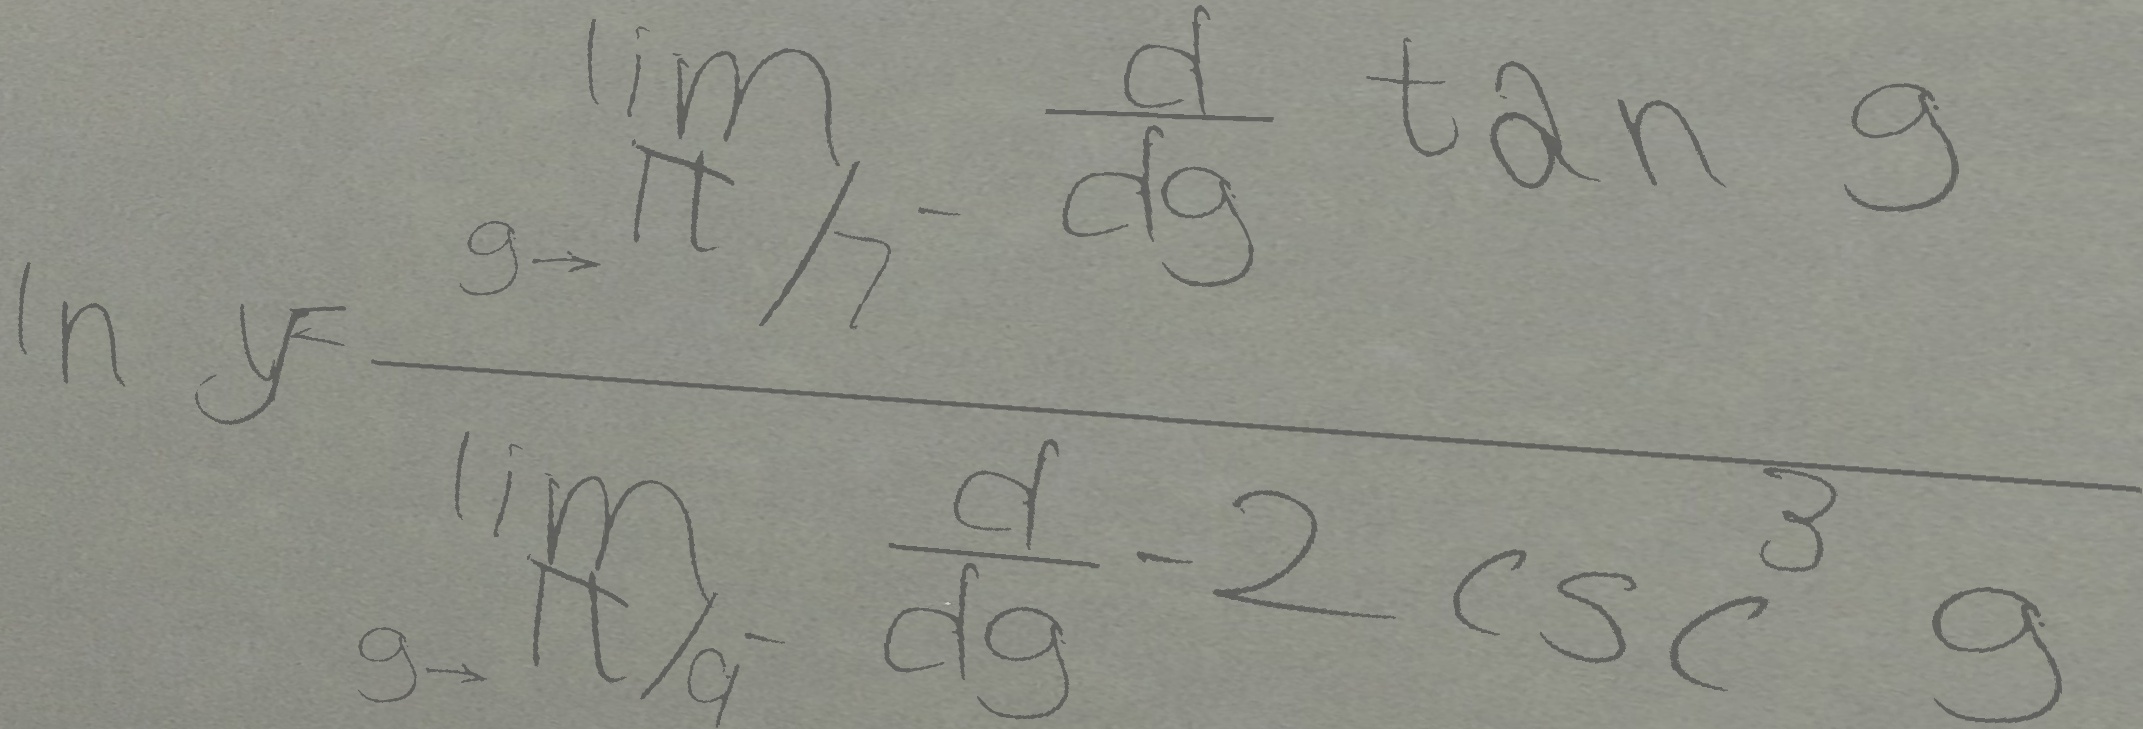 \ln y = \frac{\lim_{g \to \pi/7^-} \frac{d}{dg} \tan g}{\lim_{g \to \pi/9^-} \frac{d}{dg} -2 \csc^3 g}